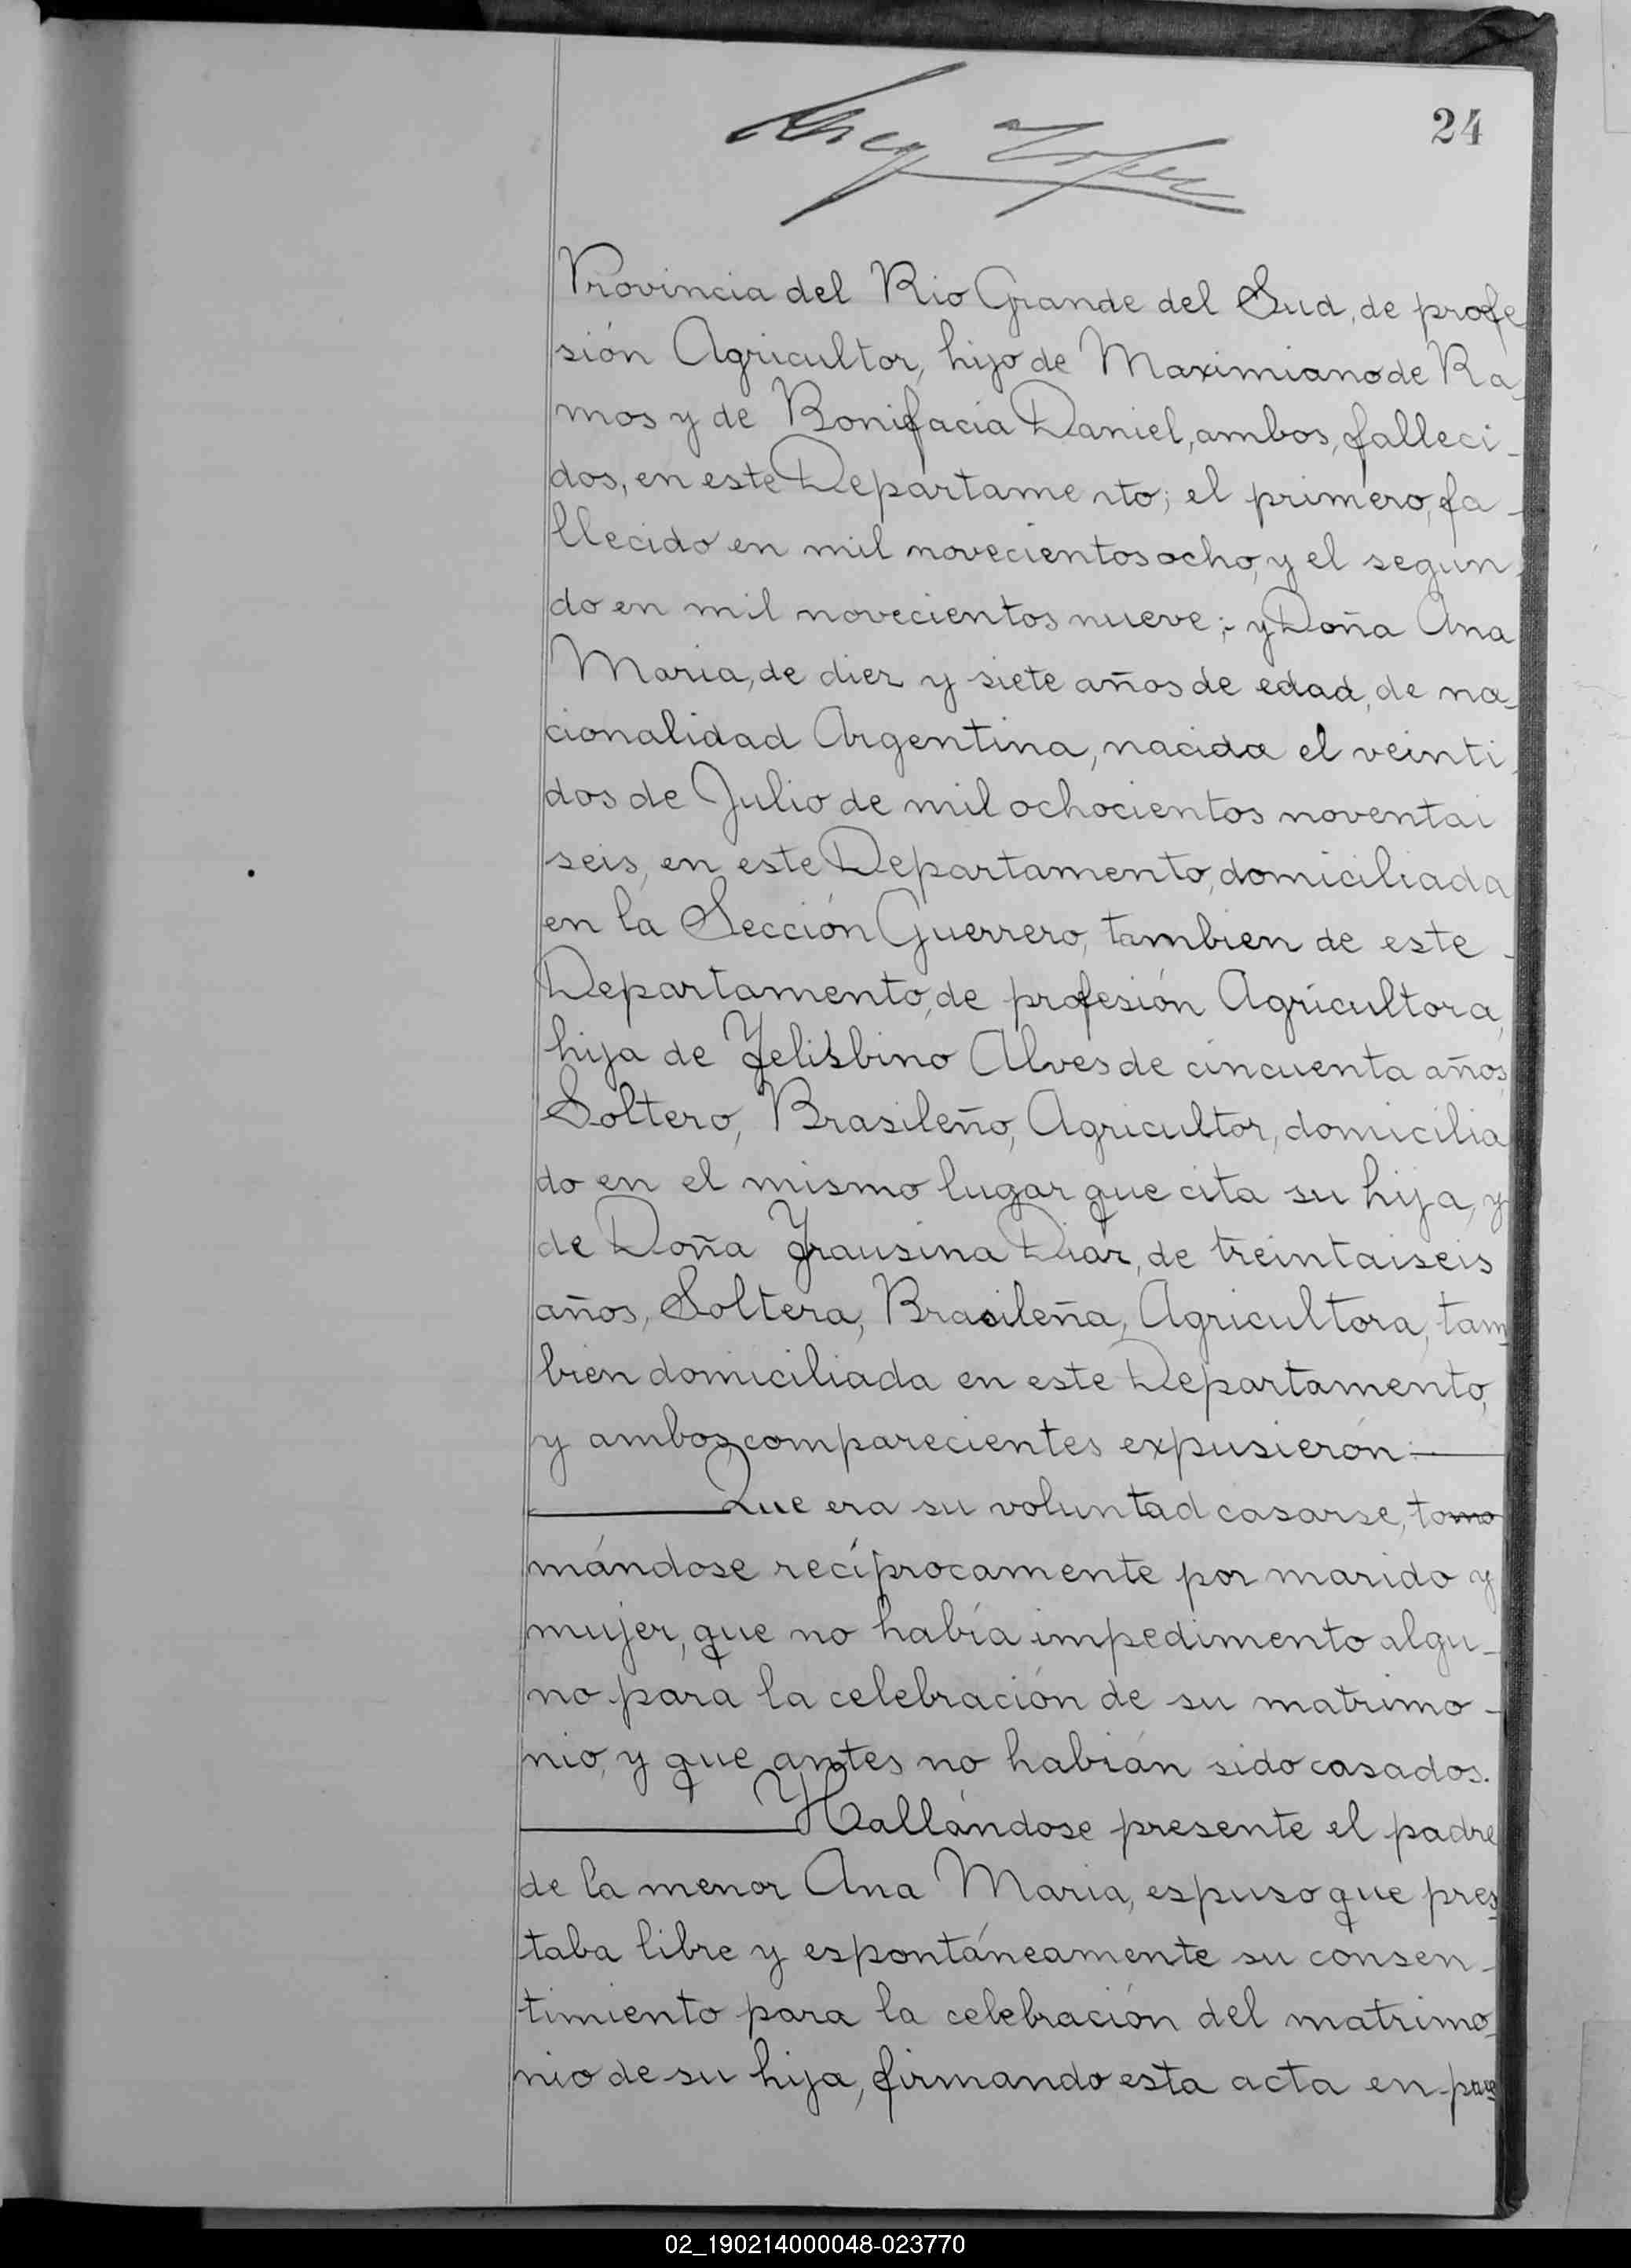 24
Provincia del Rio Grande del Sud, de profe
sión Agricultor, hijo de Maximiano de Ra
mos y de Bonifacia Daniel, ambos, falleci-
dos, en este Departamento; el primero, fa-
llecido en mil novecientos ocho, y el segun
do en mil novecientos nueve; y Doña Ana
Maria, de diez y siete años de edad, de na-
cionalidad Argentina, nacida el veinti
dos de Julio de mil ochocientos noventai
seis, en este Departamento, domiciliada
en la Sección Guerrero, tambien de este -
Departamento, de profesión Agricultora,
hija de Felisbino Alves de cincuenta años,
Soltero, Brasileño, Agricultor, domicilia
do en el mismo lugar que cita su hija, y
de Doña Frausina Diaz, de treintaiseis
años, Soltera, Brasileña, Agricultora, tam
bien domiciliada en este Departamento,
y ambos comparecientes expusierón:
Que era su voluntad casarse, tomo
mándose recíprocamente por marido y
mujer, que no había impedimento algu-
no para la celebración de su matrimo-
nio, y que antes no habián sido casados.
Hallándose presente el padre
de la menor Ana Maria, espuso que pres
taba libre y espontáneamente su consen-
timiento para la celebración del matrimo-
nio de su hija, firmando esta acta en
02_190214000048-023770